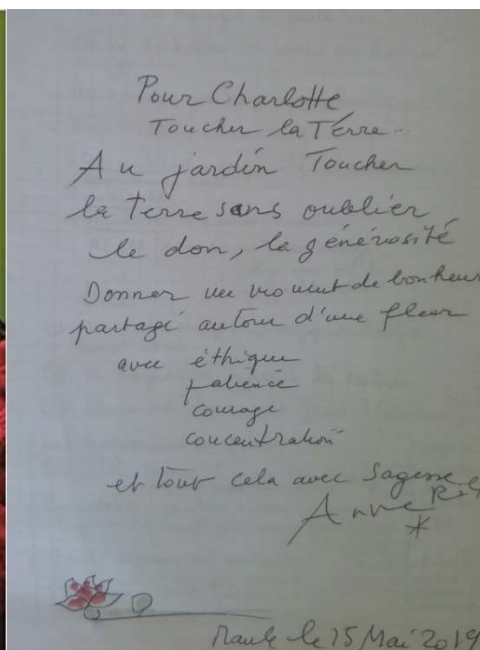 Pour Charlotte
Toucher la Terre...
Au jardin Toucher
la terre sans oublier
le don, la générosité
Donner un moment de bonheur
partagé autour d'une fleur
avec éthique
patience
courage
concentration
et tout cela avec Sagesse
Anne
le 15 Mai 2019